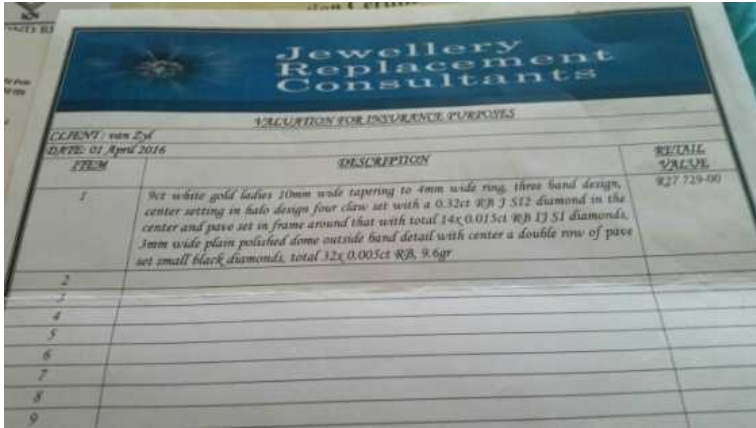 Jewellery
Replacement
Consultants
VALUATION FOR INSURANCE PURPOSES
CLIENT: van Zyl
DATE: 01 April 2016
ITEM DESCRIPTION RETAIL VALUE
1 9ct white gold ladies 10mm wide tapering to 4mm wide ring, three band design, R27 729-00
center setting in halo design four claw set with a 0.32ct RB J SI2 diamond in the
center and pave set in frame around that with total 14x 0.015ct RB IJ SI diamonds,
3mm wide plain polished dome outside band detail with center a double row of pave
set small black diamonds, total 32x 0.005ct RB, 9.6gr
2
3
4
5
6
7
8
9